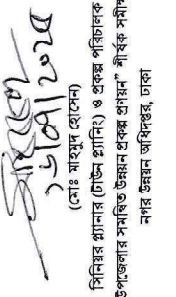 ১৬/০৭/২০২৫
(মোঃ মাহমুদ হোসেন)
সিনিয়র প্ল্যানার (টাউন প্ল্যানিং) ও প্রকল্প পরিচালক
উপজেলার সমন্বিত উন্নয়ন প্রকল্প প্রণয়ন” শীর্ষক সমীক্ষ
নগর উন্নয়ন অধিদপ্তর, ঢাকা